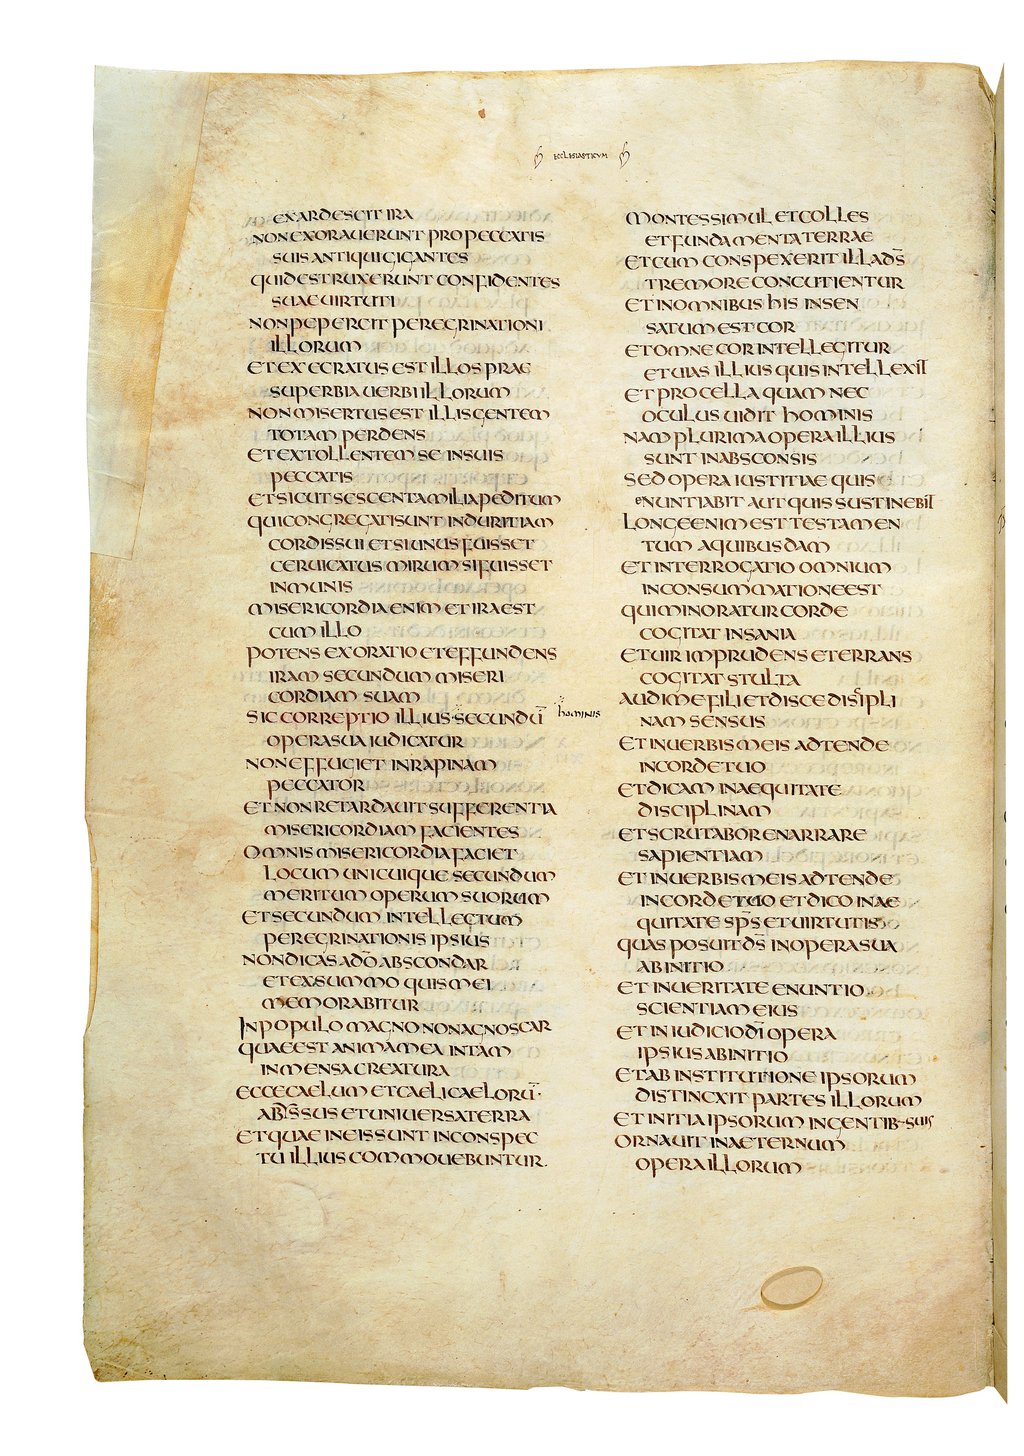 ECCLESIASTICUM
EXARDESCIT IRA
NON EXORAUERUNT PRO PECCATIS
SUIS ANTIQUI GIGANTES
QUI DESTRUXERUNT CONFIDENTES
SUAE UIRTUTI
NON PEPERCIT PEREGRINATIONI
ILLORUM
ET EXECRATUS EST ILLOS PRAE
SUPERBIA UERBI ILLORUM
NON MISERTUS EST ILLIS GENTEM
TOTAM PERDENS
ET EXTOLLENTEM SE IN SUIS
PECCATIS
ET SICUT SESCENTA MILIA PEDITUM
QUI CONGREGATI SUNT IN DURITIAM
CORDIS SUI ET SI UNUS FUISSET
CERUICATUS MIRUM SI FUISSET
INMUNIS
MISERICORDIA ENIM ET IRA EST
CUM ILLO
POTENS EXORATIO ET EFFUNDENS
IRAM SECUNDUM MISERI
CORDIAM SUAM
SIC CORREPTIO ILLIUS·SECUNDŪ hominis
OPERA SUA IUDICATUR
NON EFFUGIET IN RAPINAM
PECCATOR
ET NON RETARDAUIT SUFFERENTIA
MISERICORDIAM FACIENTES
OMNIS MISERICORDIA FACIET
LOCUM UNICUIQUE SECUNDUM
MERITUM OPERUM SUORUM
ET SECUNDUM INTELLECTUM
PEREGRINATIONIS IPSIUS
NON DICAS A DŌ ABSCONDAR
ET EX SUMMO QUIS MEI
MEMORABITUR
IN POPULO MAGNO NON AGNOSCAR
QUAE EST ANIMA MEA IN TAM
INMENSA CREATURA
ECCE CAELUM ET CAELI CAELORŪ·
ABYSSUS ET UNIUERSA TERRA
ET QUAE IN EIS SUNT IN CONSPEC
TU ILLIUS COMMOUEBUNTUR.
MONTES SIMUL ET COLLES
ET FUNDAMENTA TERRAE
ET CUM CONSPEXERIT ILLA DS̄
TREMORE CONCUTIENTUR
ET IN OMNIBUS HIS INSEN
SATUM EST COR
ET OMNE COR INTELLEGITUR
ET UIAS ILLIUS QUIS INTELLEXIT
ET PROCELLA QUAM NEC
OCULUS UIDIT HOMINIS
NAM PLURIMA OPERA ILLIUS
SUNT IN ABSCONSIS
SED OPERA IUSTITIAE QUIS
ENUNTIABIT AUT QUIS SUSTINEBIT
LONGE ENIM EST TESTAMEN
TUM A QUIBUSDAM
ET INTERROGATIO OMNIUM
IN CONSUMMATIONE EST
QUI MINORATUR CORDE
COGITAT INSANIA
ET UIR IMPRUDENS ET ERRANS
COGITAT STULTA
AUDI ME FILI ET DISCE DISCIPLI
NAM SENSUS
ET IN UERBIS MEIS ADTENDE
IN CORDE TUO
ET DICAM IN AEQUITATE
DISCIPLINAM
ET SCRUTABOR ENARRARE
SAPIENTIAM
ET IN UERBIS MEIS ADTENDE
IN CORDE TUO ET DICO IN AE
QUITATE SPS̄ ET UIRTUTIS
QUAS POSUIT DS̄ IN OPERA SUA
AB INITIO
ET IN UERITATE ENUNTIO
SCIENTIAM EIUS
ET IN IUDICIO DĪ OPERA
IPSIUS AB INITIO
ET AB INSTITUTIONE IPSORUM
DISTINCXIT PARTES ILLORUM
ET INITIA IPSORUM IN GENTIB· SUIS
ORNAUIT IN AETERNUM
OPERA ILLORUM